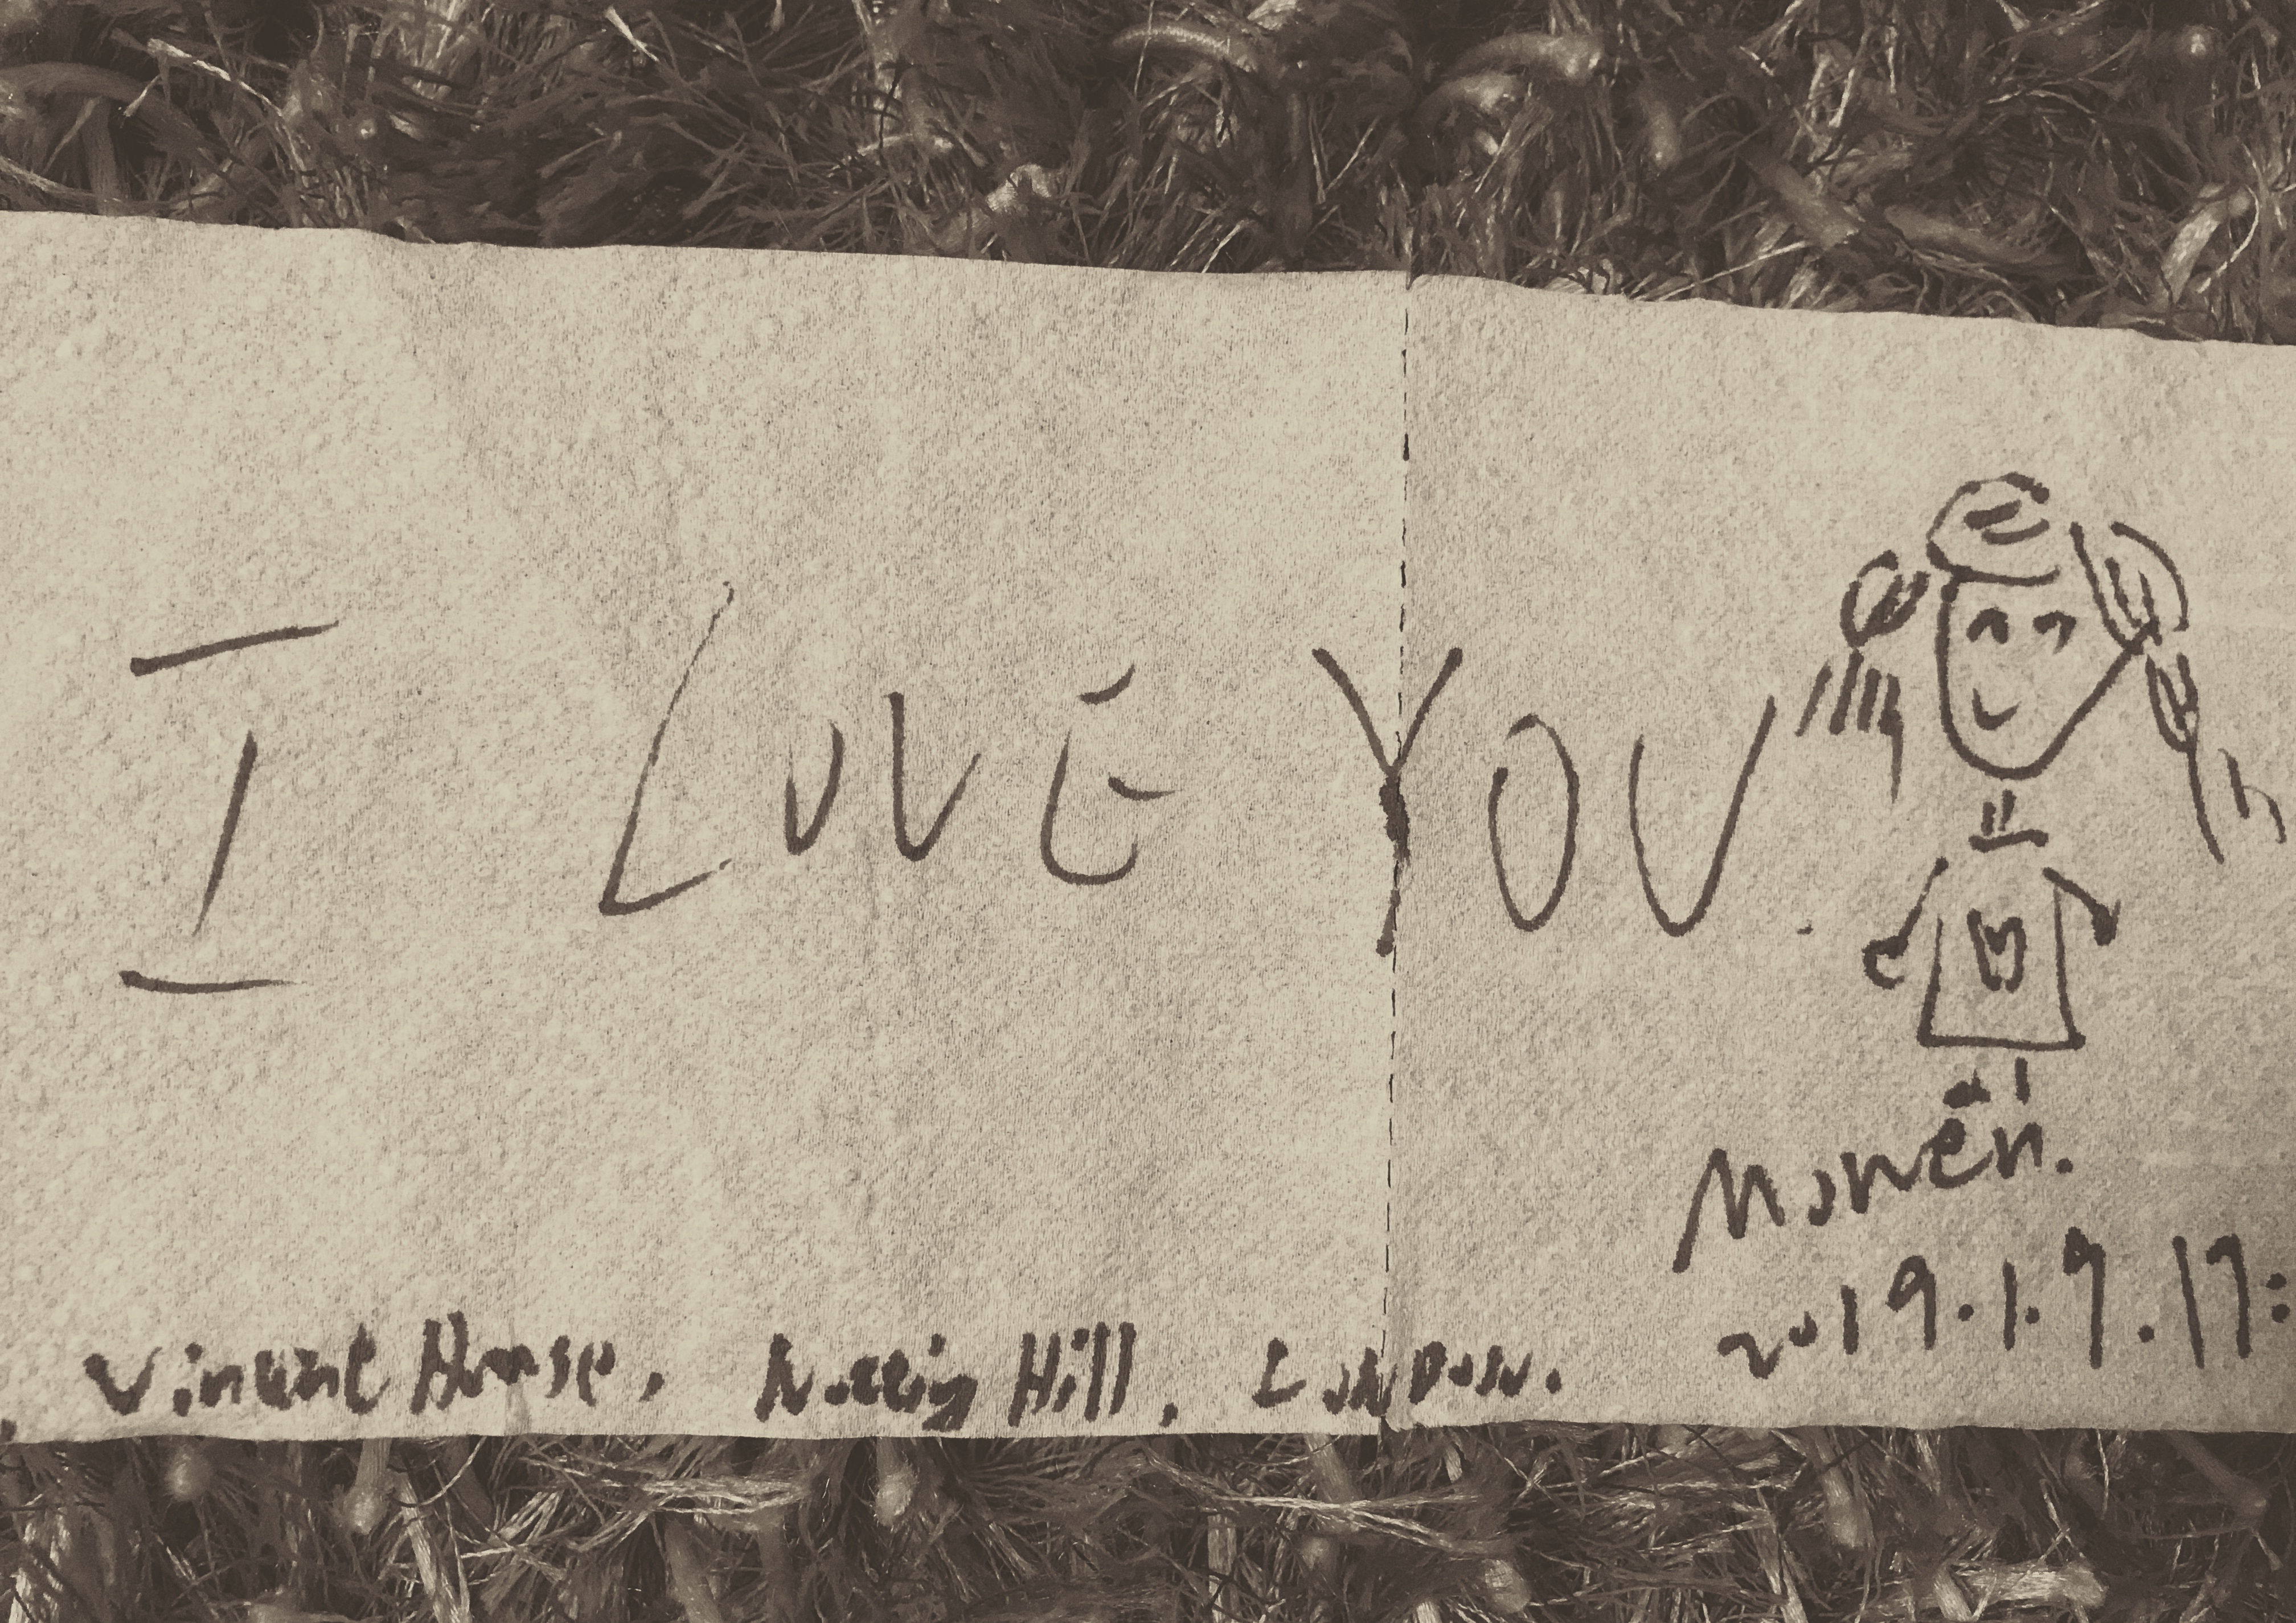 I LOVE YOU.
Monen.
2019.1.9.17:
Vincent House, Notting Hill, LonDon.